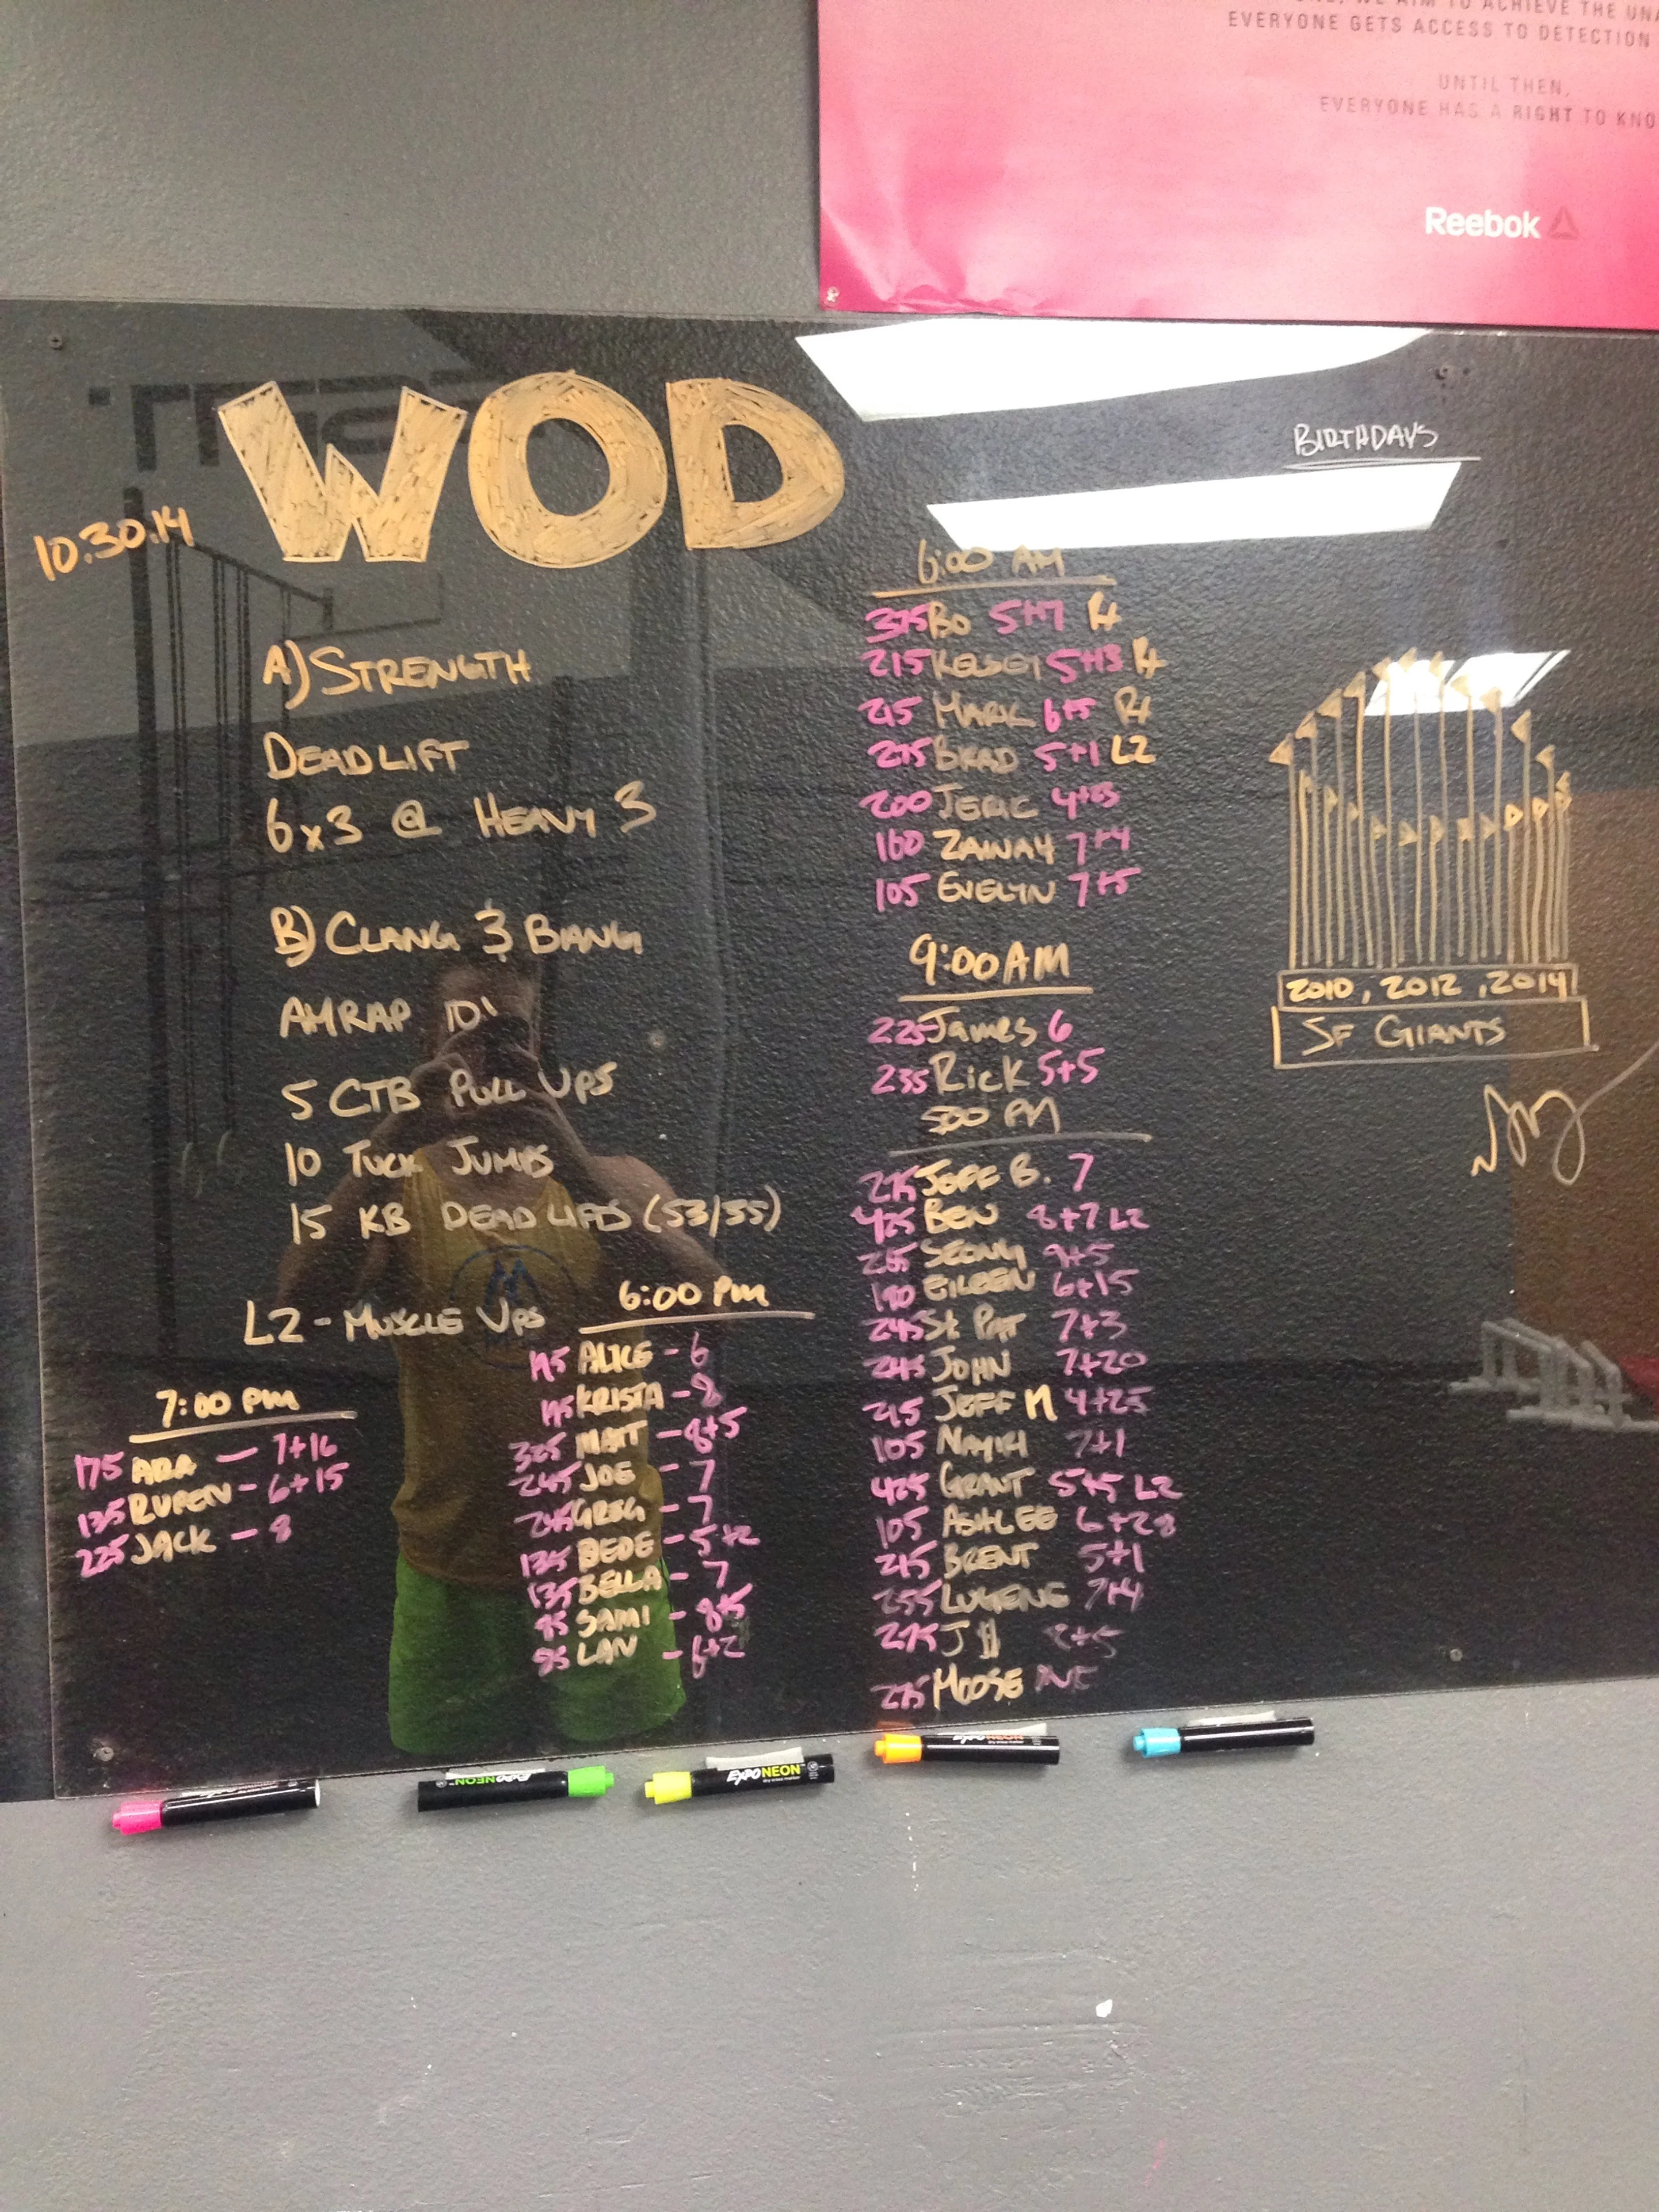 EVERYONE GETS ACCESS TO DETECTION
UNTIL THEN,
EVERYONE HAS A RIGHT TO KNO
Reebok
WOD
10.30.14
BIRTHDAYS
A) STRENGTH
DEADLIFT
6x3 @ HEAVY 3
B) CLANG & BANG
AMRAP 10'
5 CTB PULL UPS
10 TUCK JUMPS
15 KB DEADLIFTS (53/35)
L2 - MUSCLE UPS
6:00 AM
375 BO 5+7 RX
215 KELSEY 5+13 RX
215 MARK 6+5 RX
275 BRAD 5+1 L2
200 JERIC
160 ZAINAH 7+4
105 EVELYN 7+5
9:00 AM
225 James 6
235 Rick 5+5
5:00 PM
275 JEFF B. 7
425 BEN 8+7 L2
265 9+5
190 EILEEN 6+15
245 St. PAT 7+3
245 JOHN 7+20
JEFF M 4+25
105 NAYIRI 7+1
425 GRANT 5+5 L2
105 ASHLEE 6+28
BRENT 5+1
255 LUGENE 7+4
275 J $
275 MOOSE
6:00 PM
ALICE - 6
KRISTA - 8
MATT - 8+5
245 JOE - 7
GREG - 7
135 BEDE - 5+2
135 BELLA - 7
SAMI - 8+5
95 LAN - 6+2
7:00 PM
175 ARA - 7+16
135 RUPEN - 6+15
225 JACK - 8
2010, 2012, 2014
SF GIANTS
EXPO NEON
EXPO NEON
EXPO NEON